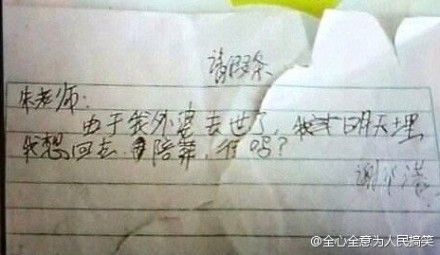 请假条
朱老师:
由于我外婆去世了,我 明天埋
我想回去 陪葬,行吗?
谢
@全心全意为人民搞笑